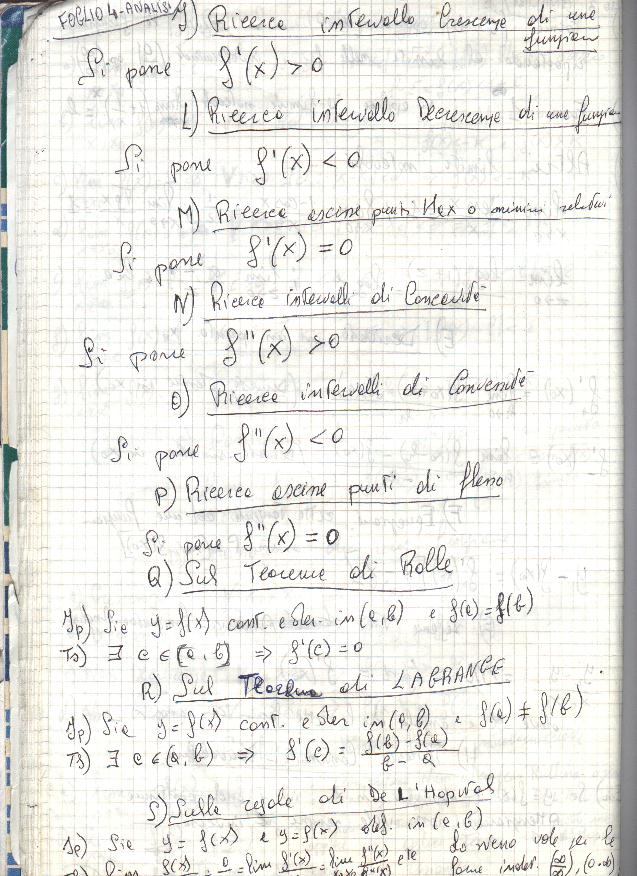 FOGLIO 4-ANALISI
I) Ricerca intervallo Crescenza di una funzione
Si pone f'(x) > 0
L) Ricerca intervallo Decrescenza di una funzione
Si pone f'(x) < 0
M) Ricerca ascisse punti Max o minimi relativi
Si pone f'(x) = 0
N) Ricerca intervalli di Concavità
Si pone f''(x) > 0
O) Ricerca intervalli di Convessità
Si pone f''(x) < 0
P) Ricerca ascisse punti di flesso
Si pone f''(x) = 0
Q) Sul Teorema di Rolle
Ip) Sia y = f(x) cont. e der in (a, b) e f(a) = f(b)
Ts) ∃ c ∈ [a, b] ⇒ f'(c) = 0
R) Sul Teorema di LAGRANGE
Ip) Sia y = f(x) cont. e der in (a, b) e f(a) ≠ f(b)
Ts) ∃ c ∈ (a, b) ⇒ f'(c) = f(b) - f(a) / b - a
S) Sulla regola di De L'Hopital
Ip) Sia y = f(x) e y = f(x) def. in (a, b)